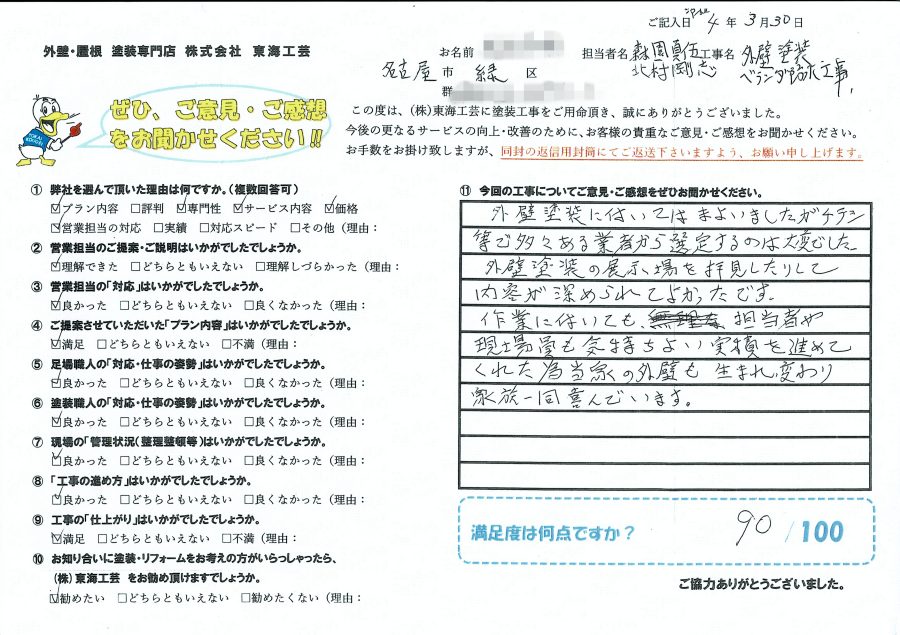 ご記入日 令和4年3月30日
外壁・屋根 塗装専門店 株式会社 東海工芸
お名前
担当者名 森園真伍 北村剛志
工事名 外壁塗装 ベランダ防水工事
名古屋市 緑 区
群
ぜひ、ご意見・ご感想
をお聞かせください!!
この度は、(株)東海工芸に塗装工事をご用命頂き、誠にありがとうございました。
今後の更なるサービスの向上・改善のために、お客様の貴重なご意見・ご感想をお聞かせください。
お手数をお掛け致しますが、同封の返信用封筒にてご返送下さいますよう、お願い申し上げます。
① 弊社を選んで頂いた理由は何ですか。(複数回答可)
☑プラン内容 □評判 ☑専門性 ☑サービス内容 ☑価格
☑営業担当の対応 □実績 □対応スピード □その他(理由:
② 営業担当のご提案・ご説明はいかがでしたでしょうか。
☑理解できた □どちらともいえない □理解しづらかった(理由:
③ 営業担当の「対応」はいかがでしたでしょうか。
☑良かった □どちらともいえない □良くなかった(理由:
④ ご提案させていただいた「プラン内容」はいかがでしたでしょうか。
☑満足 □どちらともいえない □不満(理由:
⑤ 足場職人の「対応・仕事の姿勢」はいかがでしたでしょうか。
☑良かった □どちらともいえない □良くなかった(理由:
⑥ 塗装職人の「対応・仕事の姿勢」はいかがでしたでしょうか。
☑良かった □どちらともいえない □良くなかった(理由:
⑦ 現場の「管理状況(整理整頓等)はいかがでしたでしょうか。
☑良かった □どちらともいえない □良くなかった(理由:
⑧ 「工事の進め方」はいかがでしたでしょうか。
☑良かった □どちらともいえない □良くなかった(理由:
⑨ 工事の「仕上がり」はいかがでしたでしょうか。
☑満足 □どちらともいえない □不満(理由:
⑩ お知り合いに塗装・リフォームをお考えの方がいらっしゃったら、
(株)東海工芸 をお勧め頂けますでしょうか。
☑勧めたい □どちらともいえない □勧めたくない(理由:
⑪ 今回の工事についてご意見・ご感想をぜひお聞かせください。
外壁塗装に付いてはまよいましたがチラシ
等で多々ある業者から選定するのは大変でした
外壁塗装の展示場を拝見したりして
内容が深められてよかったです。
作業に付いても、担当者や
現場員も気持ちよい実積を進めて
くれた為当家の外壁も生まれ変わり
家族一同喜んでいます。
満足度は何点ですか? 90 /100
ご協力ありがとうございました。